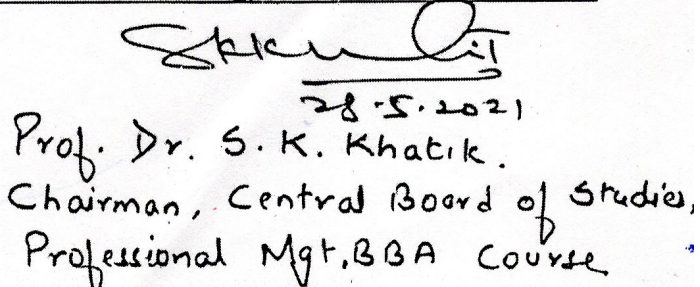 28-5-2021
Prof. Dr. S. K. Khatik.
Chairman, Central Board of Studies,
Professional Mgt, BBA Course